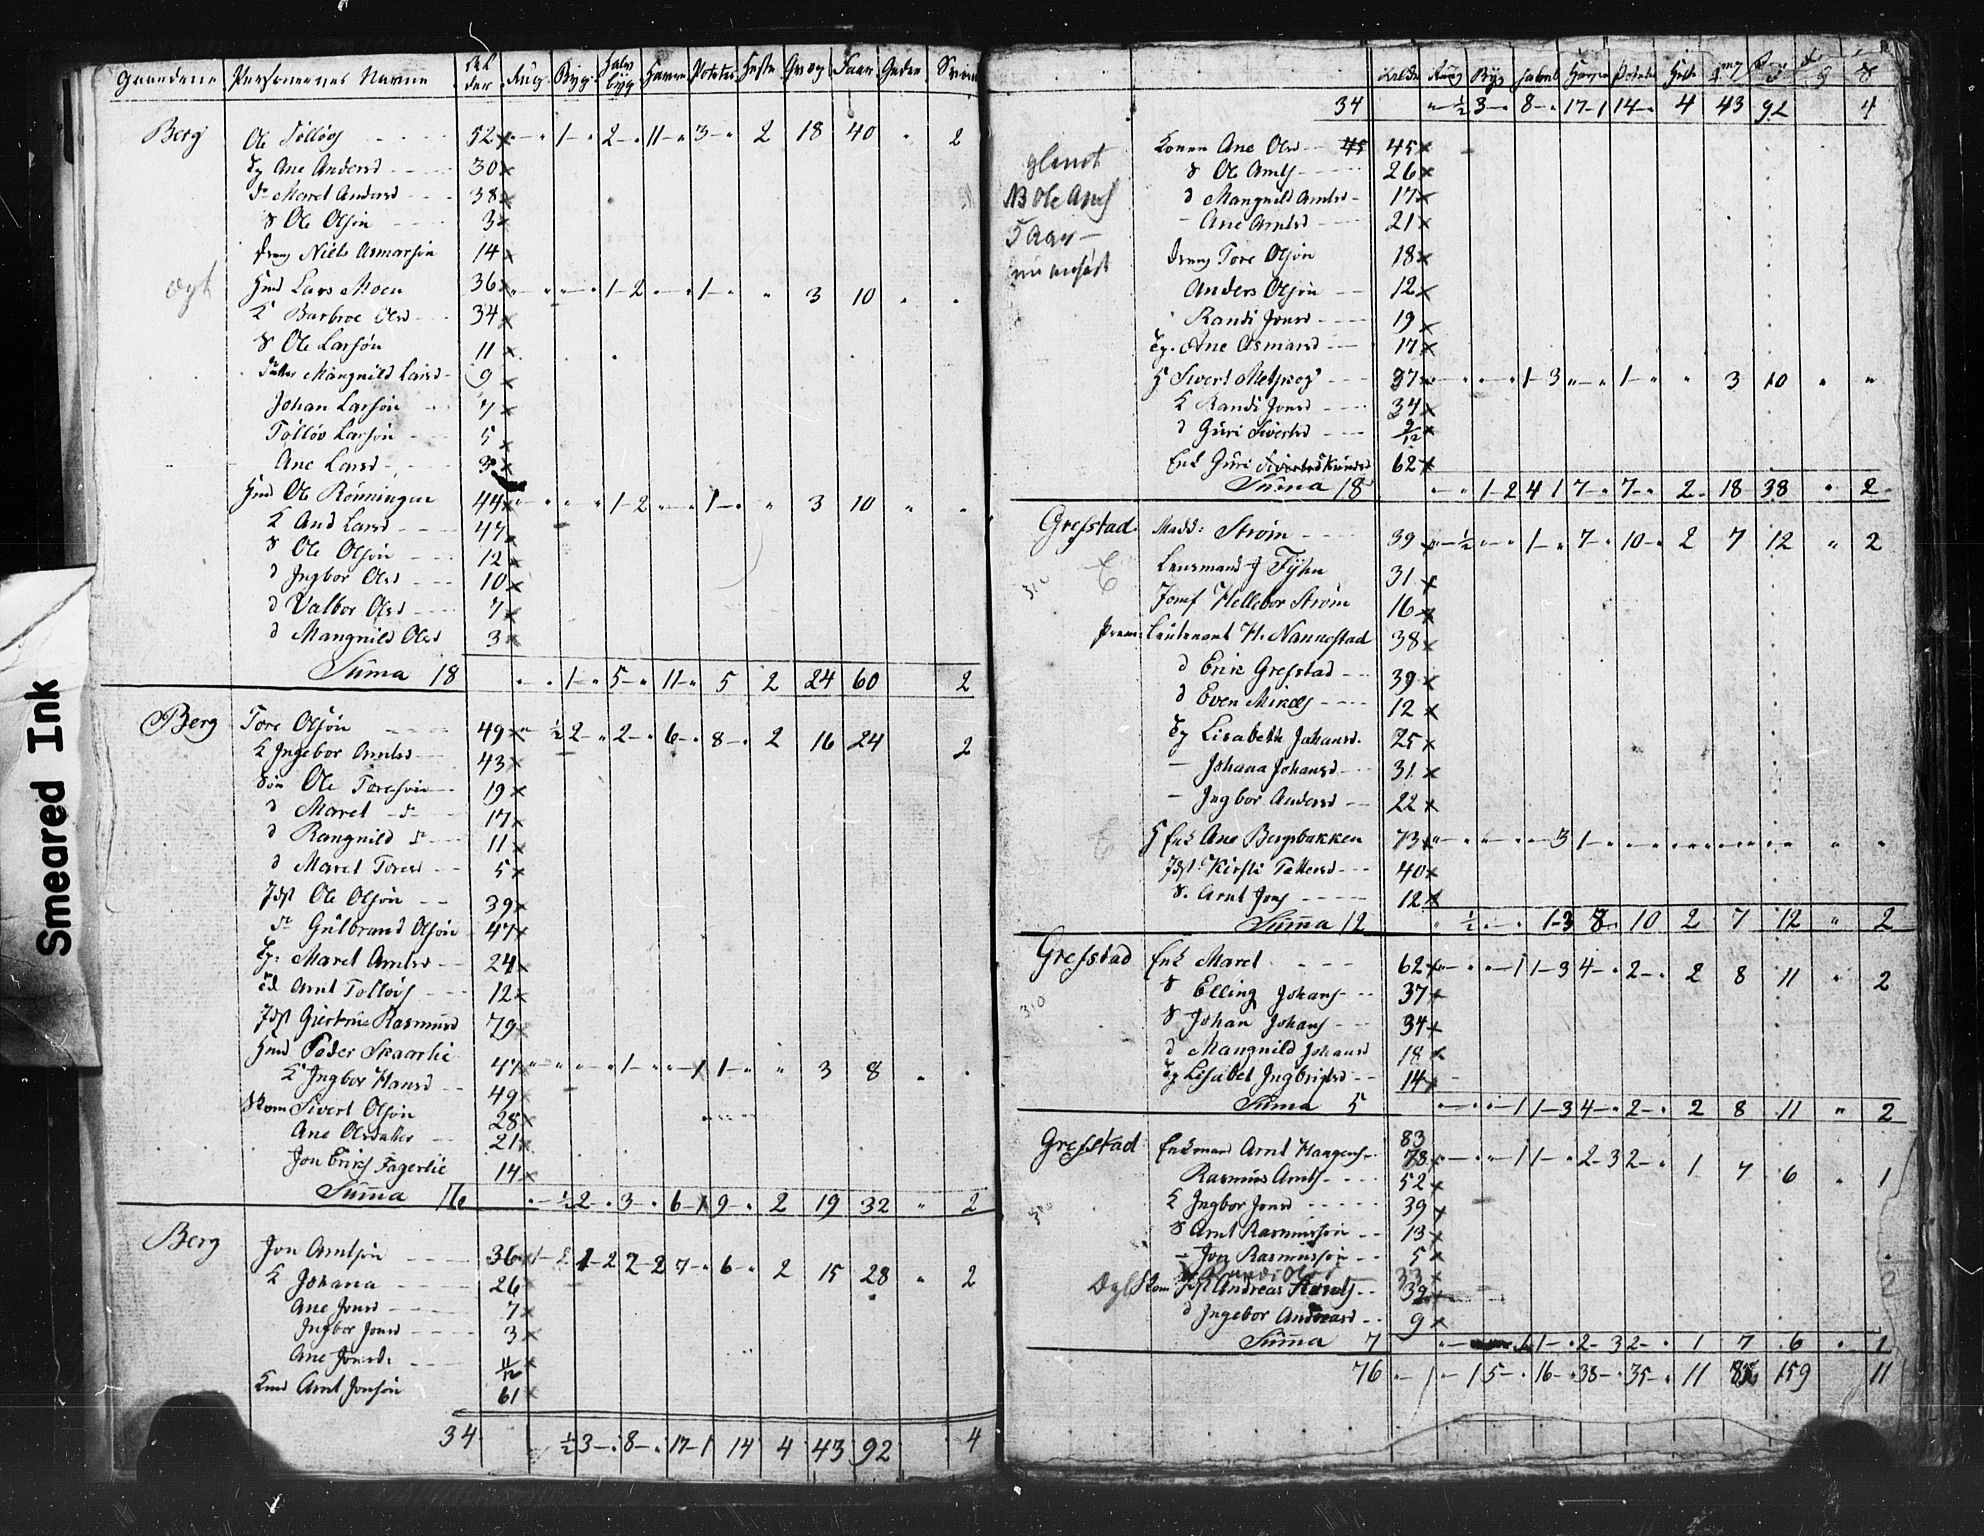 Gaardene Personernes Navne Alder Rug Byg Halvbyg Havre Potetes Heste Qvæg Faar Geder Sviin
Berg Ole Tolløvs 52 x 1 2 11 3 2 18 40 2
Tj Ane Andersd 30 x
d Maret Andersd 38 x
S Ole Olsøn 3 x
dreng Niels Asmarsøn 14 x
Hmd Lars Moen 36 x 1-2 1 3 10
K Barbroe Olsd 34 x
S Ole Larsøn 11 x
datter Mangnild Larsd 9 x
Johan Larsøn 7 x
Tolløv Larsøn 5 x
Ane Larsd 3 x
Hmd Ole Rønningen 44 x 1-2 1 3 10
K And Larsd 47 x
S Ole Olsøn 12 x
d Ingbor Olsd 10 x
d Valbor Olsd 7 x
d Mangnild Olsd 3 x
Suma 18 1 5 11 5 2 24 60 2
Berg Tore Olsøn 49 x ½ 2 2 6 8 2 16 24 2
K Ingebor Arntsd 43 x
Søn Ole Toresøn 19 x
d Maret do 17 x
d Rangnild do 11 x
d Maret Toresd 5 x
Jdst Ole Olsøn 39 x
do Gulbrand Olsøn 47 x
Tj. Maret Arntsd 24 x
Arnt Tolløvs 12 x
Jdst Giertrue Rasmusd 79 x
Hmd Peder Skaarlie 47 x 1 1 3 8
K Ingbor Hansd 49 x
Skom Sivert Olsøn 28 x
Ane Olsdatter 21 x
Jon Eriks Fagerlie 14 x
Suma 16 ½ 2 3 6 1 9 2 19 32 2
Berg Jon Arntsøn 36 1-2 2-2 7 6 2 15 28 2
K Johana 26 x
Ane Jonsd 7 x
Ingbor Jonsd 3 x
Ane Jonsd: 11/12 x
Kmd Arnt Jonsøn 61 x
34 ½ 3 8 17-1 14 4 43 92 4
34 ½ 3 8 17-1 14 4 43 92 4
Konen Ane Olsd 45 45 x
glemt
S Ole Arnts 26 x
NB Ole Arnts
d Mangnild Arntsd 17 x
Ane Arntsd 21 x
5 Aar
dreng Tore Olsøn 18 x
Anders Olsøn 12 x
Randi Jonsd 19 x
Tj. Ane Asmarsd 17 x
H Sivert Melskog 37 x 1-3 1 3 10
K Randi Jonsd 34 x
d Guri Sivertsd 9/12 x
Enk Guri Sivertsd Knudsd 62 x
Suma 18 1-2 4 1 7 7 2 18 38 2
Grefstad Madd: Strøm 39 x ½ 1 7 10 2 7 12 2
Lensmand J Fyhn 31 x
Jomf Hellebor Strøm 16 x
Prem: Leutenant H. Nannestad 38 x
d Erik Grefstad 39 x
d Even Mikels 12 x
Tj Lisabeth Johansd. 25 x
Johana Johansd 31 x
Ingbor Andersd 22 x
H Enk Ane Bergsbakken 73 x 3 1
Jdst Kirsti Pettersd 40 x
S. Arnt Jons 12 x
Suma 12 ½ 1-3 8 10 2 7 12 2
Grefstad Enk Maret 62 x 1 1-3 4 2 2 8 11 2
310
S Elling Johans 37 x
S Johan Johans 34 x
d Mangnild Johansd 18 x
Tj Lisabet Ingbrigtsd 14 x
Suma 5 1 1-3 4 2 2 8 11 2
Grefstad Enkmand Arnt Haagens 83 78 x 1 1 2-3 2 1 7 6 1
Rasmus Arnts 52 x
K Ingbor Jonsd 39 x
S Arnt Rasmussøn 13 x
Jon Rasmussøn 5 x
Randi Olsd 33 x
Skom Jdst Andreas 39 x
d Ingebor Andreasd 9 x
Suma 7 1 1 2-3 2 1 7 6 1
76 1 1 5 16 38 35 11 159 11
Smeared Ink